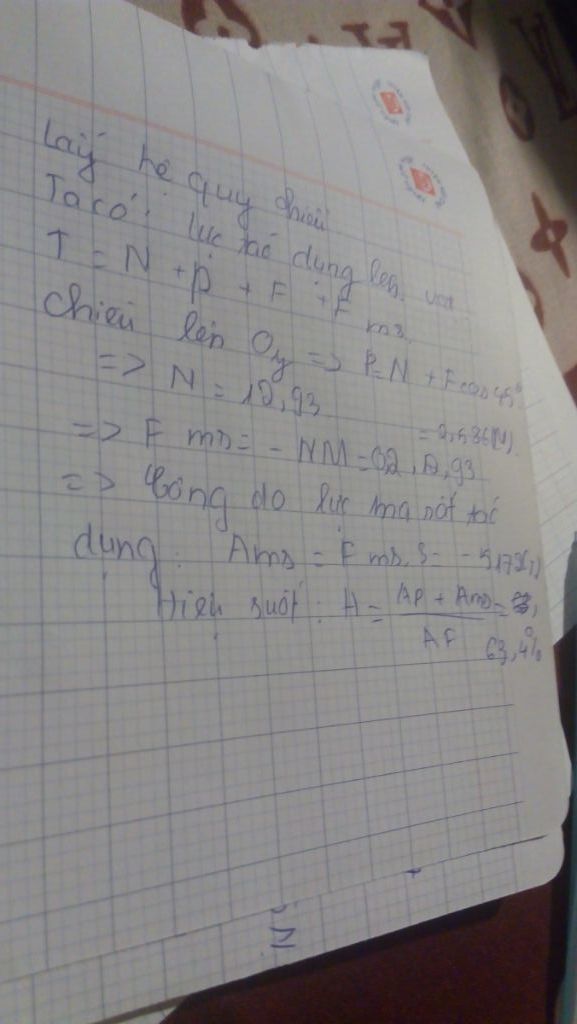 Lấy hệ quy chiếu
Ta có: lực tác dụng lên vật
T = N + P + F + F ms
Chiếu lên Oy => P = N + F cos 45°
=> N = 12,93
=> F ms = - NM = 0,2 . 12,93
= 2,586(N)
=> Công do lực ma sát tác
dụng: Ams = F ms. S = - 5,172(J)
Hiệu suất: H = AF + Ams =
AF
63,4%